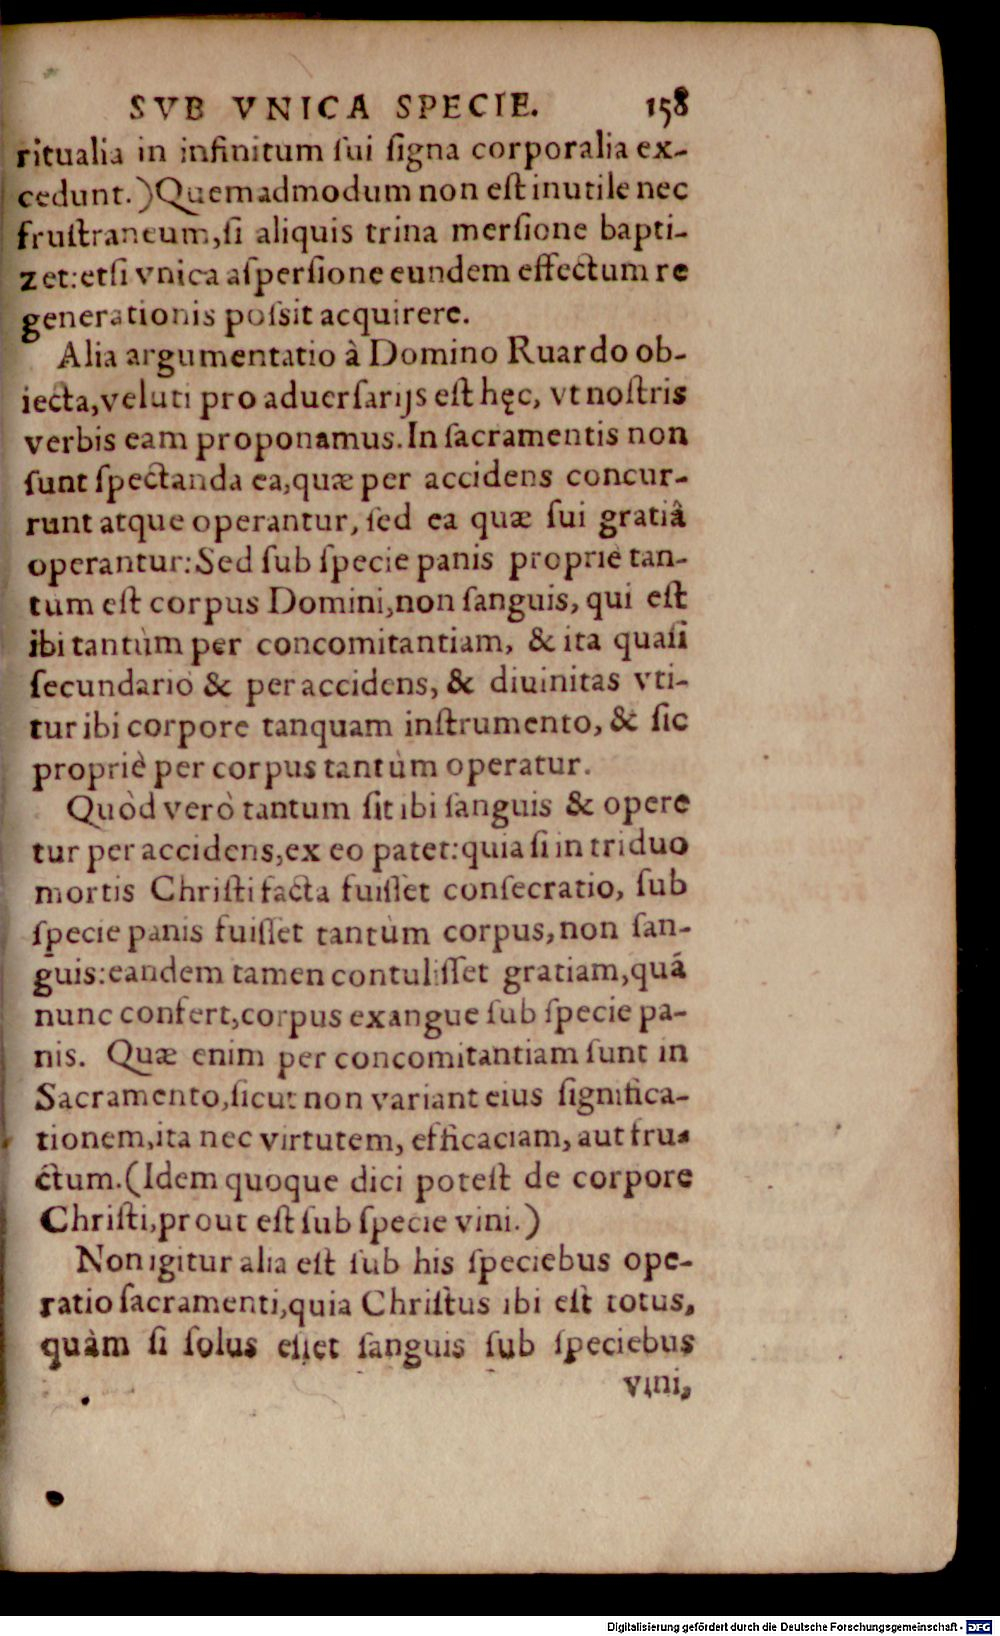 SVB VNICA SPECIE. 158
ritualia in infinitum ſui ſigna corporalia ex-
cedunt.) Quemadmodum non eſt inutile nec
fruſtraneum, ſi aliquis trina merſione bapti-
zet: etſi vnica aſperſione eundem effectum re
generationis poſsit acquirere.
Alia argumentatio à Domino Ruardo ob-
iecta, veluti pro aduerſarijs eſt hęc, vt noſtris
verbis eam proponamus. In ſacramentis non
ſunt ſpectanda ea, quæ per accidens concur-
runt atque operantur, ſed ea quæ ſui gratiâ
operantur: Sed ſub ſpecie panis propriè tan-
tùm eſt corpus Domini, non ſanguis, qui eſt
ibi tantùm per concomitantiam, & ita quaſi
ſecundariò & per accidens, & diuinitas vti-
tur ibi corpore tanquam inſtrumento, & ſic
propriè per corpus tantùm operatur.
Quòd verò tantum ſit ibi ſanguis & opere
tur per accidens, ex eo patet: quia ſi in triduo
mortis Chriſti facta fuiſſet conſecratio, ſub
ſpecie panis fuiſſet tantùm corpus, non ſan-
guis: eandem tamen contuliſſet gratiam, quā
nunc confert, corpus exangue ſub ſpecie pa-
nis. Quæ enim per concomitantiam ſunt in
Sacramento, ſicut non variant eius ſignifica-
tionem, ita nec virtutem, efficaciam, aut fru-
ctum. (Idem quoque dici poteſt de corpore
Chriſti, prout eſt ſub ſpecie vini.)
Non igitur alia eſt ſub his ſpeciebus ope-
ratio ſacramenti, quia Chriſtus ibi eſt totus,
quàm ſi ſolus eſſet ſanguis ſub ſpeciebus
vini,
Digitalisierung gefördert durch die Deutsche Forschungsgemeinschaft - DFG